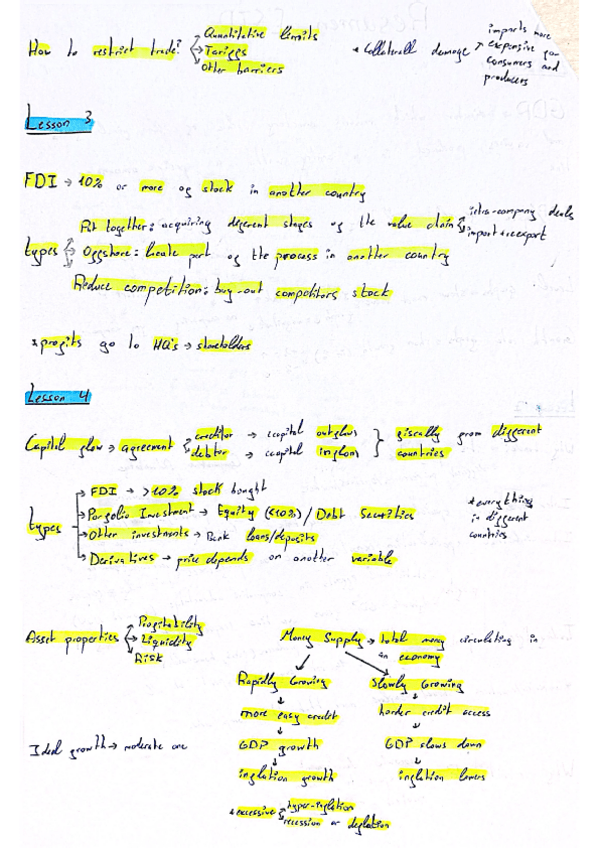 How to restrict trade?
Quantitative limits
Tariggs
Other barriers
* Collaterall damage ↗ imports more
expensive gor
consumers and
producers
Lesson 3
FDI → 10% or more og stock in another country
types
Put together: acquiring digerent stages og the value chain
intra-company deals
import → export
Oggshore: locate part og the process in another country
Reduce competition: buy-out competitors stock
* progits go to HQ's → shareholders
Lesson 4
Capital glow → agreement
creditor → capital outglow
debtor → capital inglow
giscally grom diggerent
countries
types
FDI → >10% stock bought
Porgolio Investment → Equity (<10%) / Debt Securities
Other investments → Bank loans/deposits
Derivatives → price depends on another variable
* everything
in diggerent
countries
Asset properties
Progitability
Liquidity
Risk
Money Supply → total money circulating in
an economy
Rapidly Growing
↓
more easy credit
↓
GDP growth
↓
inglation growth
* excessive
hyper-inglation
recession or deglation
Slowly Growing
↓
harder credit access
↓
GDP slows down
↓
inglation lowers
Ideal growth → moderate one